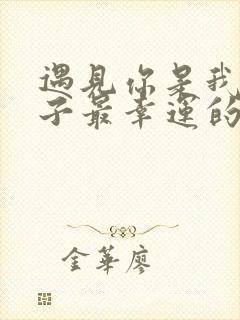 遇見你是我
子最幸運的
金華廖